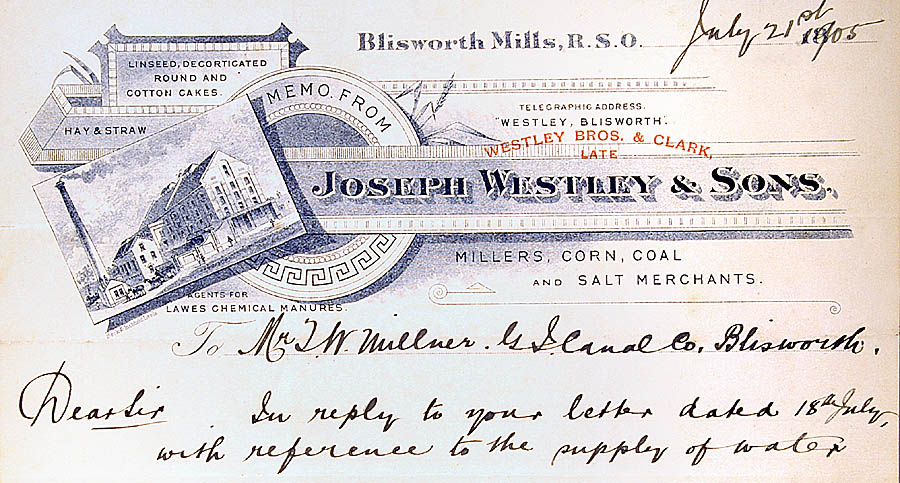 Blisworth Mills, R.S.O.
July 21st 1905
LINSEED, DECORTICATED
ROUND AND
COTTON CAKES.
HAY & STRAW
MEMO. FROM
TELEGRAPHIC ADDRESS.
"WESTLEY, BLISWORTH".
WESTLEY BROS. & CLARK,
LATE
JOSEPH WESTLEY & SONS.
MILLERS, CORN, COAL
AND SALT MERCHANTS.
AGENTS FOR
LAWES CHEMICAL MANURES.
To Mr J. W. Millner. G J. Canal Co. Blisworth.
Dear Sir In reply to your letter dated 18th July,
with reference to the supply of water